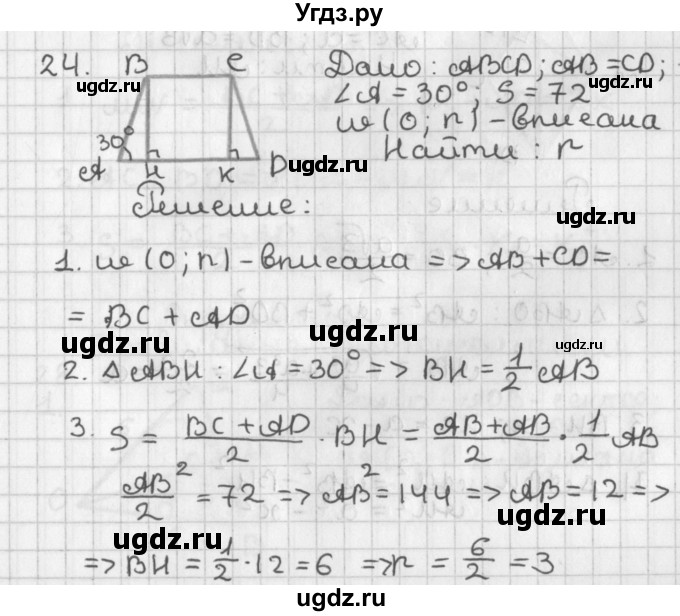 Угдз.ру
24. B C Дано: ABCD; AB = CD;
ugdz.ru ugdz.ru
∠A = 30°; S = 72
30° ω(O; r) - вписана
A H K D Найти: r
ugdz.ru ugdz.ru
Решение:
ugdz.ru
1. ω(O; r) - вписана => AB + CD =
= BC + AD
ugdz.ru ugdz.ru ugdz.ru
2. △ABH: ∠A = 30° => BH = 1/2 AB
3. S = (BC + AD)/2 · BH = (AB + AB)/2 · 1/2 AB
ugdz.ru ugdz.ru
AB²/2 = 72 => AB² = 144 => AB = 12 =>
ugdz.ru ugdz.ru
=> BH = 1/2 · 12 = 6 => r = 6/2 = 3
ugdz.ru ugdz.ru